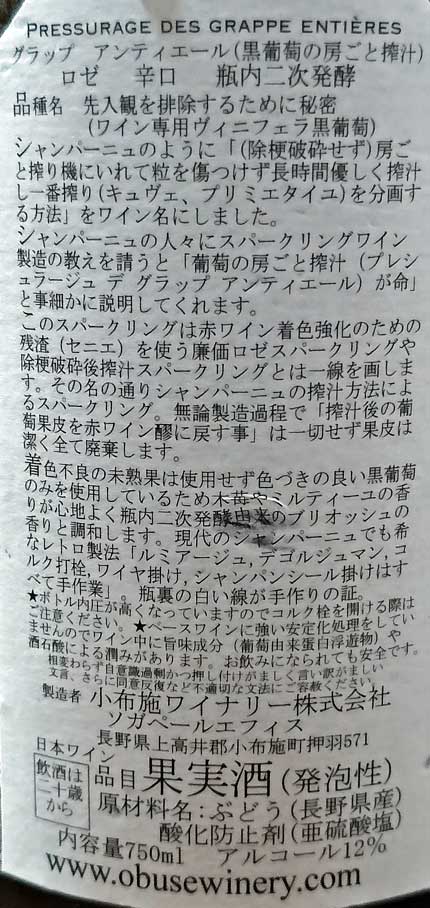 PRESSURAGE DES GRAPPE ENTIÈRES
グラップ アンティエール(黒葡萄の房ごと搾汁)
ロゼ 辛口 瓶内二次発酵
品種名 先入観を排除するために秘密
(ワイン専用ヴィニフェラ黒葡萄)
シャンパーニュのように「(除梗破砕せず)房ご
と搾り機にいれて粒を傷つけず長時間優しく搾汁
し一番搾り(キュヴェ、プリミエタイユ)を分画す
る方法」をワイン名にしました。
シャンパーニュの人々にスパークリングワイン
製造の教えを請うと「葡萄の房ごと搾汁(プレシ
ュラージュ デ グラップ アンティエール)が命」
と事細かに説明してくれます。
このスパークリングは赤ワイン着色強化のための
残渣(セニエ)を使う廉価ロゼスパークリングや
除梗破砕後搾汁スパークリングとは一線を画しま
す。その名の通りシャンパーニュの搾汁方法によ
るスパークリング。無論製造過程で「搾汁後の葡
萄果皮を赤ワイン醪に戻す事」は一切せず果皮は
潔く全て廃棄します。
着色不良の未熟果は使用せず色づきの良い黒葡萄
のみを使用しているため木苺やミルティーユの香
りが心地よく瓶内二次発酵由来のブリオッシュの
香りと調和します。現代のシャンパーニュでも希
なレトロ製法「ルミアージュ,デゴルジュマン,コ
ルク打栓,ワイヤ掛け,シャンパンシール掛けはす
べて手作業」。瓶裏の白い線が手作りの証。
★ボトル内圧が高くなっていますのでコルク栓を開ける際は
ご注意ください。★ベースワインに強い安定化処理をしてい
ませんのでワイン中に旨味成分(葡萄由来蛋白浮遊物)や
酒石酸による濁みがあります。お飲みになられても安全です。
相変わらず自意識過剰かつ押し付けがましく言い訳がましい
文言、さらに同意反復など不適切な文法にご容赦ください。
製造者 小布施ワイナリー株式会社
ソガペールエフィス
長野県上高井郡小布施町押羽571
日本ワイン
飲酒は
二十歳
から
品目 果実酒(発泡性)
原材料名:ぶどう(長野県産)
酸化防止剤(亜硫酸塩)
内容量750ml アルコール12%
www.obusewinery.com